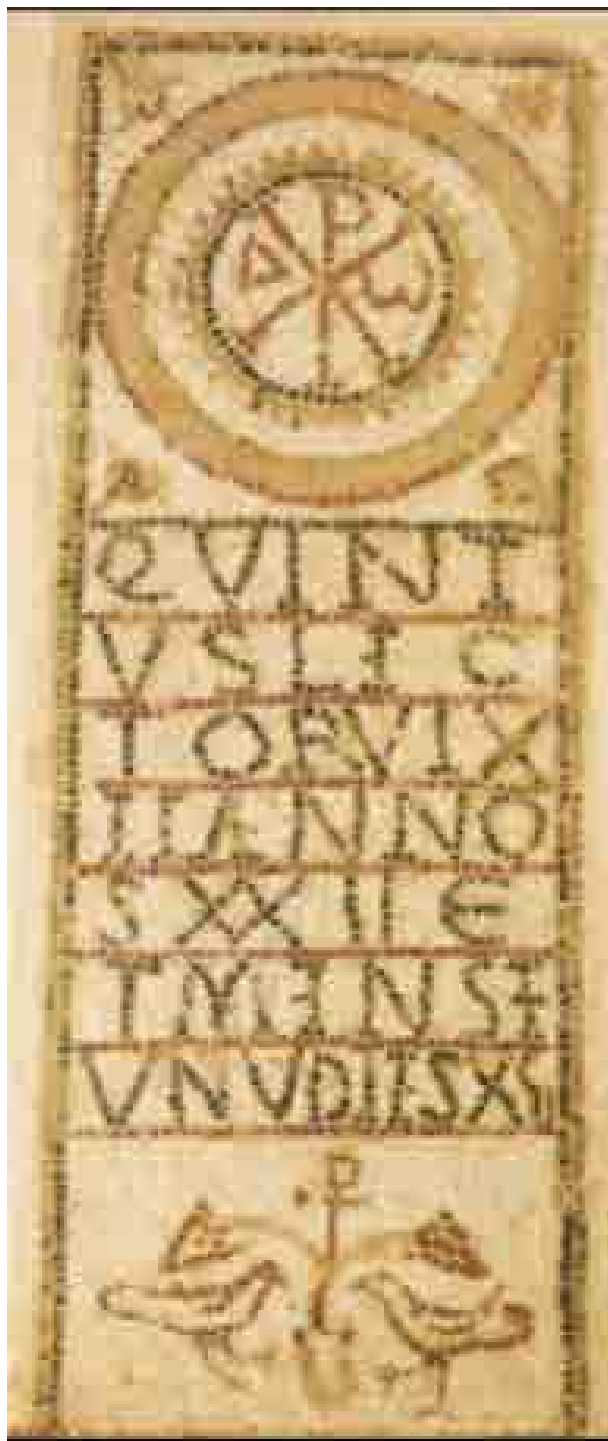 A ☧ ω
QVINT
VSLIC
TORVIX
ITANNO
SXXIIE
TMENSE
VNVDIESX